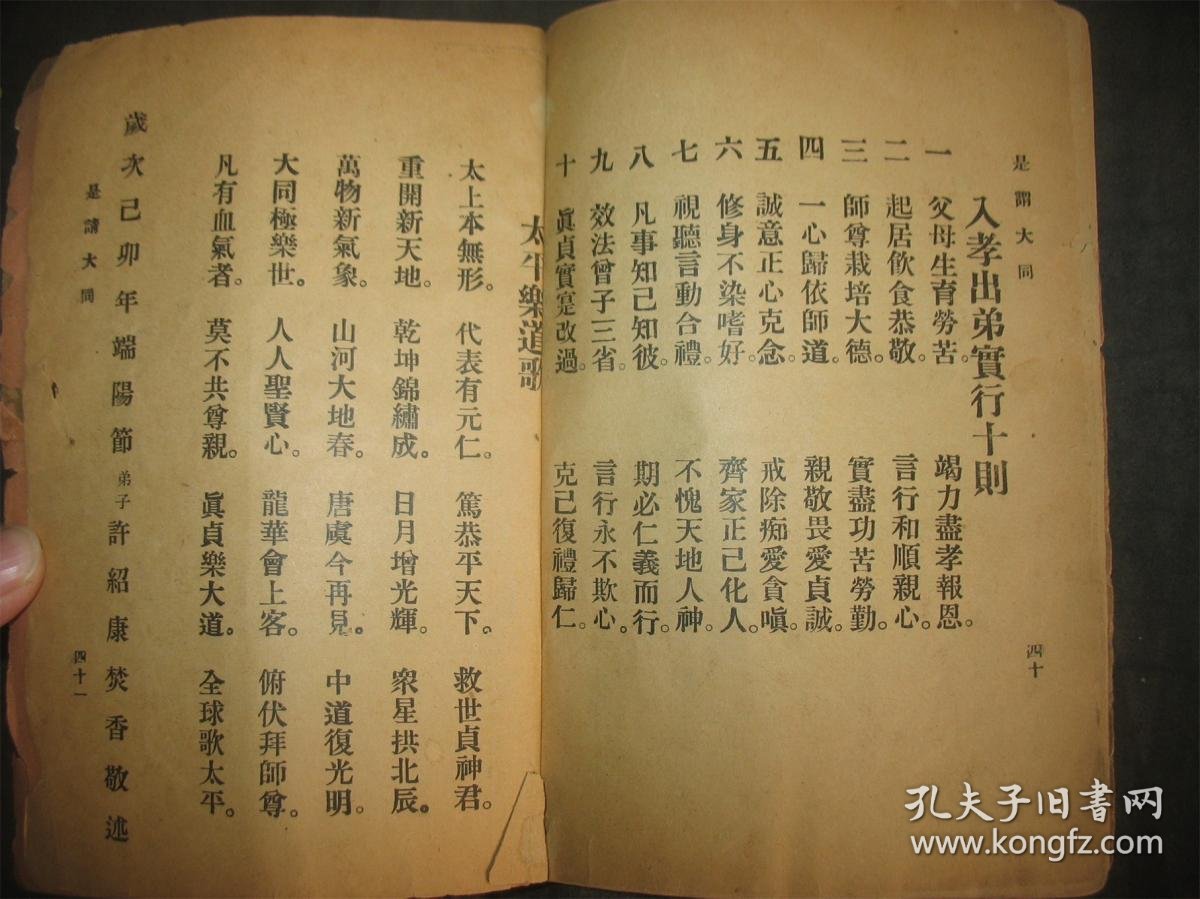 是謂大同
四十
入孝出弟實行十則
一 父母生育勞苦。 竭力盡孝報恩。
二 起居飲食恭敬。 言行和順親心。
三 師尊栽培大德。 實盡功苦勞勤。
四 一心歸依師道。 親敬畏愛貞誠。
五 誠意正心克念。 戒除痴愛貪嗔。
六 修身不染嗜好。 齊家正己化人。
七 視聽言動合禮。 不愧天地人神。
八 凡事知己知彼。 期必仁義而行。
九 效法曾子三省。 言行永不欺心。
十 眞貞實寔改過。 克己復禮歸仁。
太平樂道歌
太上本無形。 代表有元仁。 篤恭平天下。 救世貞神君。
重開新天地。 乾坤錦繡成。 日月增光輝。 衆星拱北辰。
萬物新氣象。 山河大地春。 唐虞今再見。 中道復光明。
大同極樂世。 人人聖賢心。 龍華會上客。 俯伏拜師尊。
凡有血氣者。 莫不共尊親。 眞貞樂大道。 全球歌太平。
歲次己卯年端陽節弟子許紹康焚香敬述
是謂大同
四十一
孔夫子旧書网
www.kongfz.com